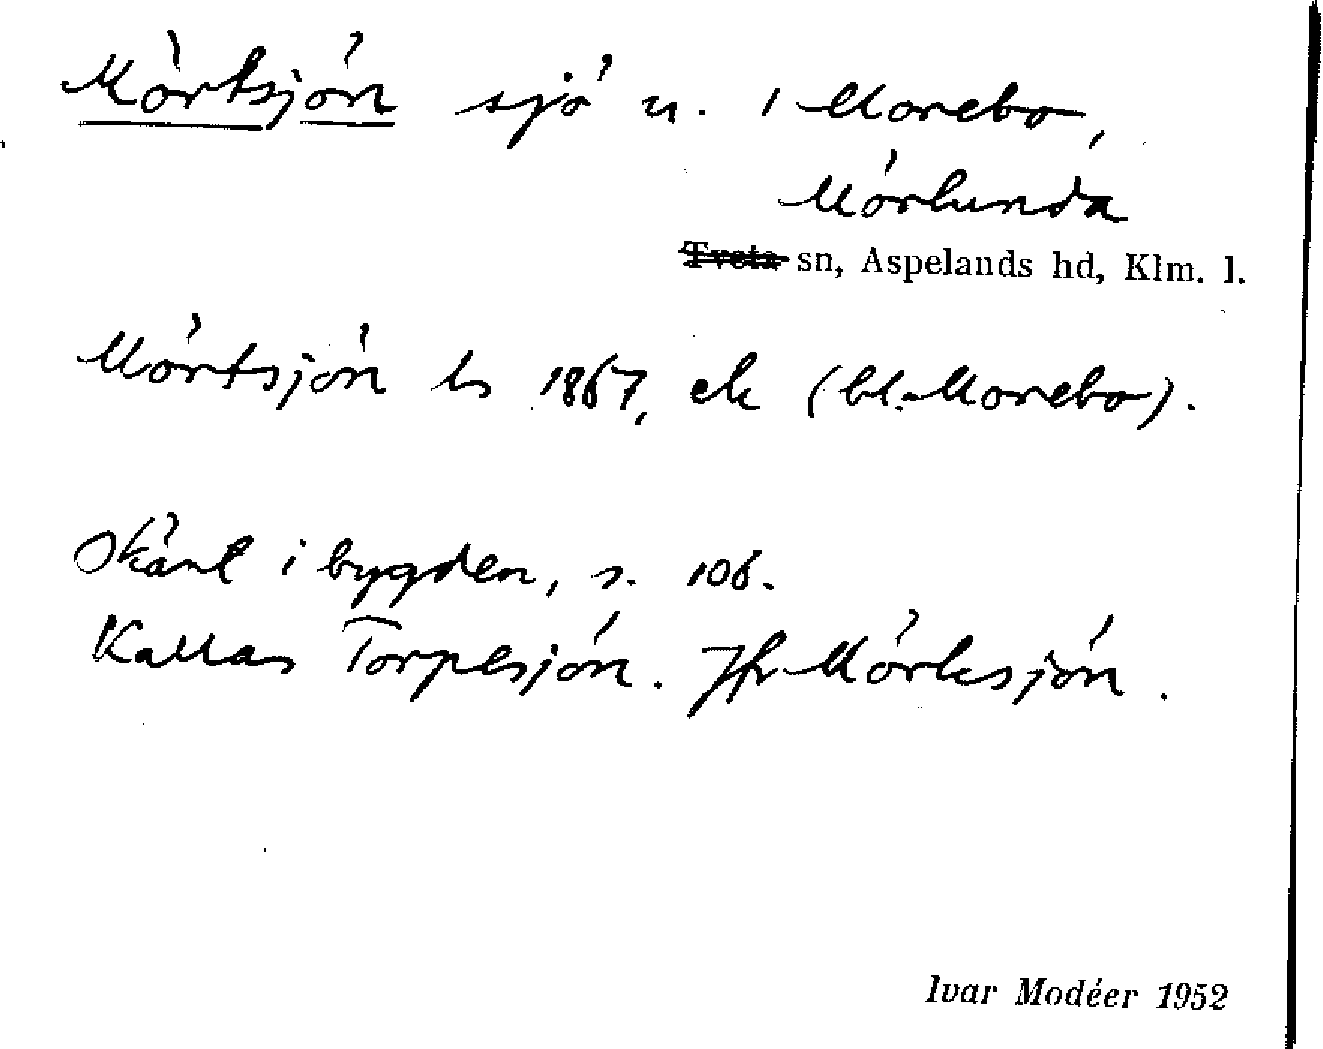 Mörtsjön sjö n. i Morebo,
Mörlunda
Tveta sn, Aspelands hd, Klm. l.
Mörtsjön ls 1867, ek (bl. Morebo).
Skärl i bygden, s. 106.
Kallas Torpesjön. Jfr Mörksjön.
Ivar Modéer 1952